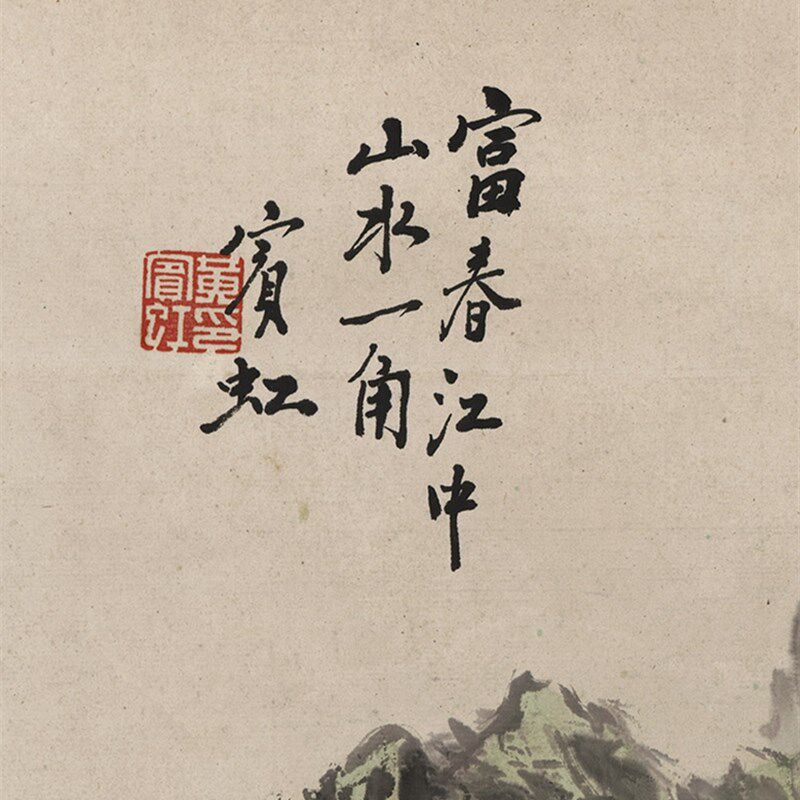 富春江中
山水一角
賓虹
黃賓虹印